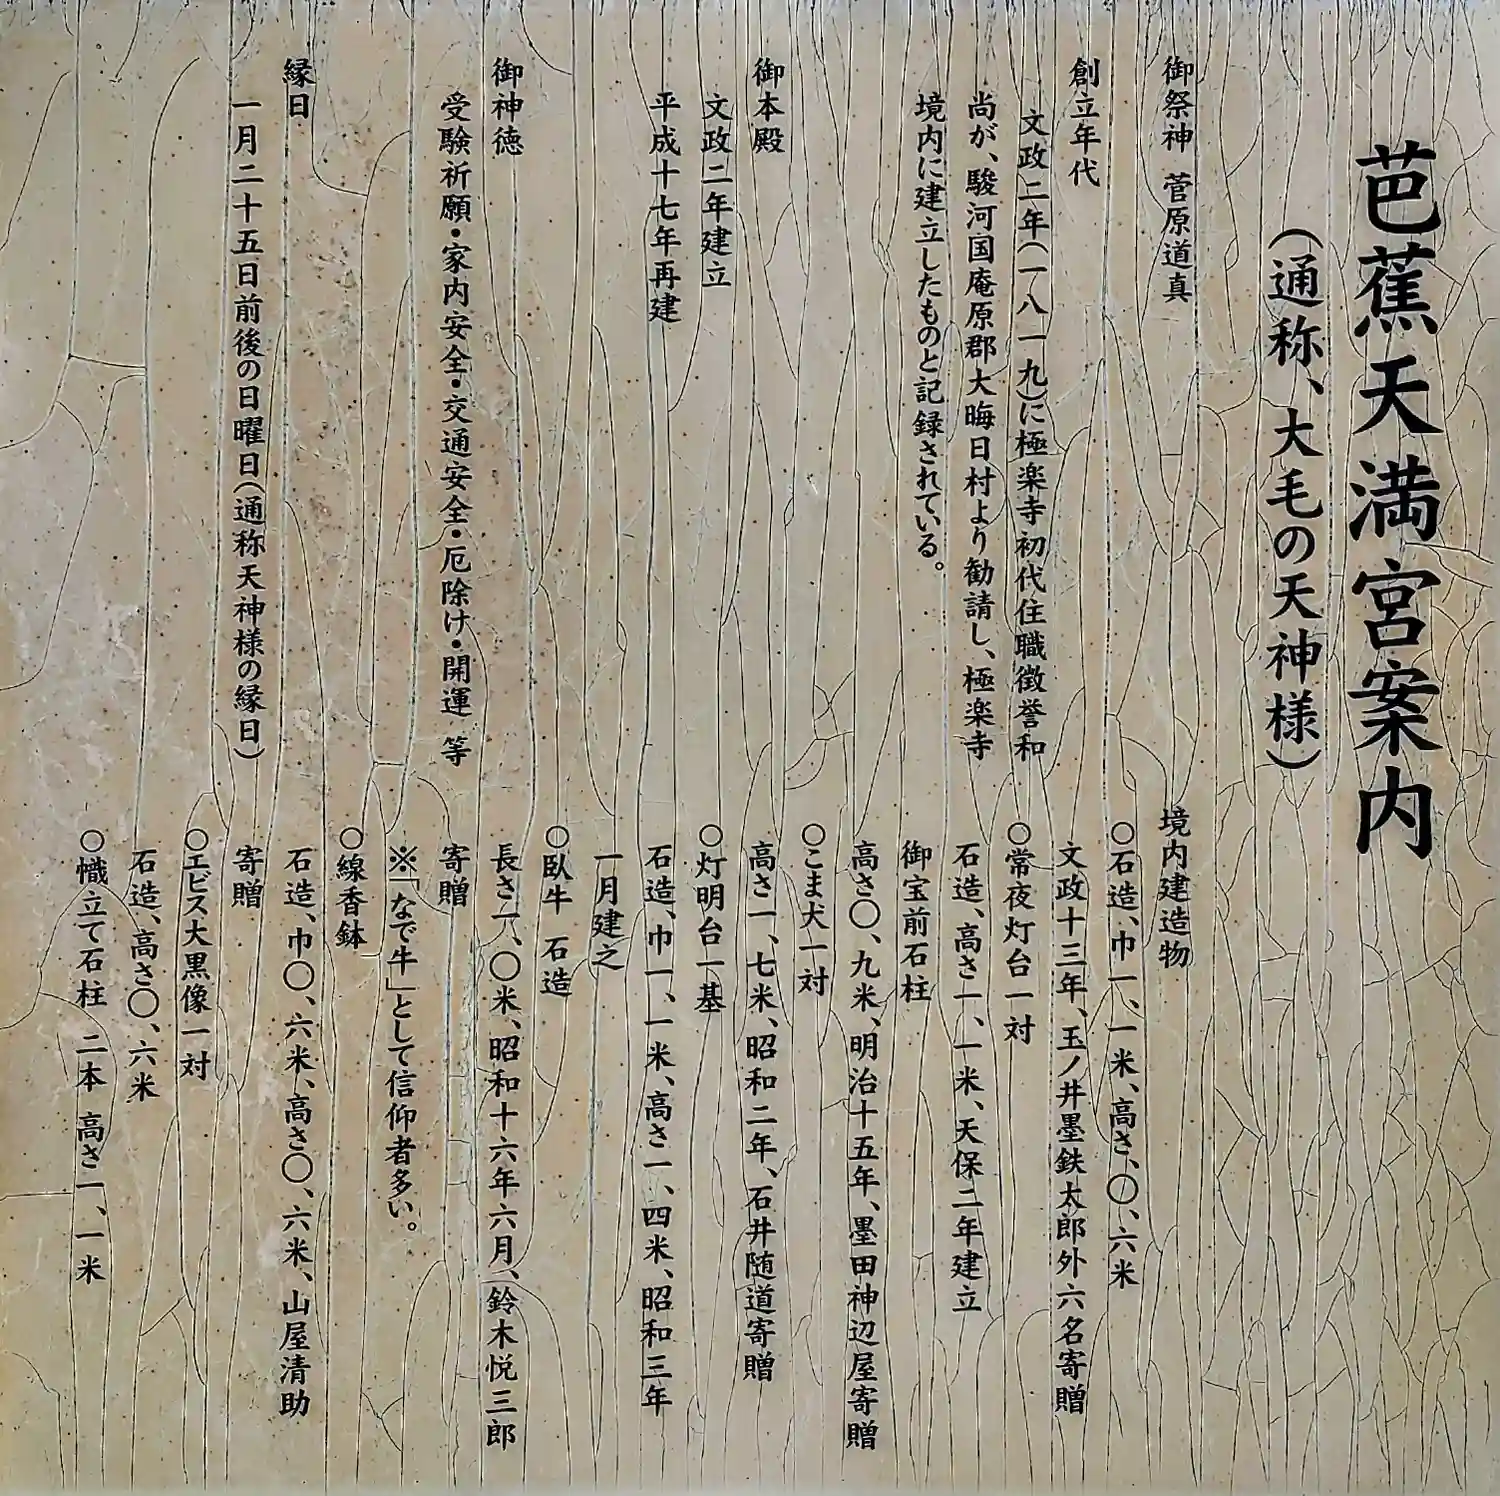 芭蕉天満宮案内
(通称、大毛の天神様)
御祭神 菅原道真
創立年代
文政二年(一八一九)に極楽寺初代住職徴誉和
尚が、駿河国庵原郡大晦日村より勧請し、極楽寺
境内に建立したものと記録されている。
御本殿
文政二年建立
平成十七年再建
御神徳
受験祈願・家内安全・交通安全・厄除け・開運 等
縁日
一月二十五日前後の日曜日(通称天神様の縁日)
境内建造物
○石造、巾一、一米、高さ、〇、六米
文政十三年、玉ノ井墨鉄太郎外六名寄贈
○常夜灯台一対
石造、高さ一、一米、天保二年建立
御宝前石柱
高さ〇、九米、明治十五年、墨田神辺屋寄贈
○こま犬一対
高さ一、七米、昭和二年、石井随道寄贈
○灯明台一基
石造、巾一、一米、高さ一、四米、昭和三年
一月建之
○臥牛 石造
長さ一、〇米、昭和十六年六月、鈴木悦三郎
寄贈
※「なで牛」として信仰者多い。
○線香鉢
石造、巾〇、六米、高さ〇、六米、山屋清助
寄贈
○エビス大黒像一対
石造、高さ〇、六米
○幟立て石柱 二本 高さ一、一米